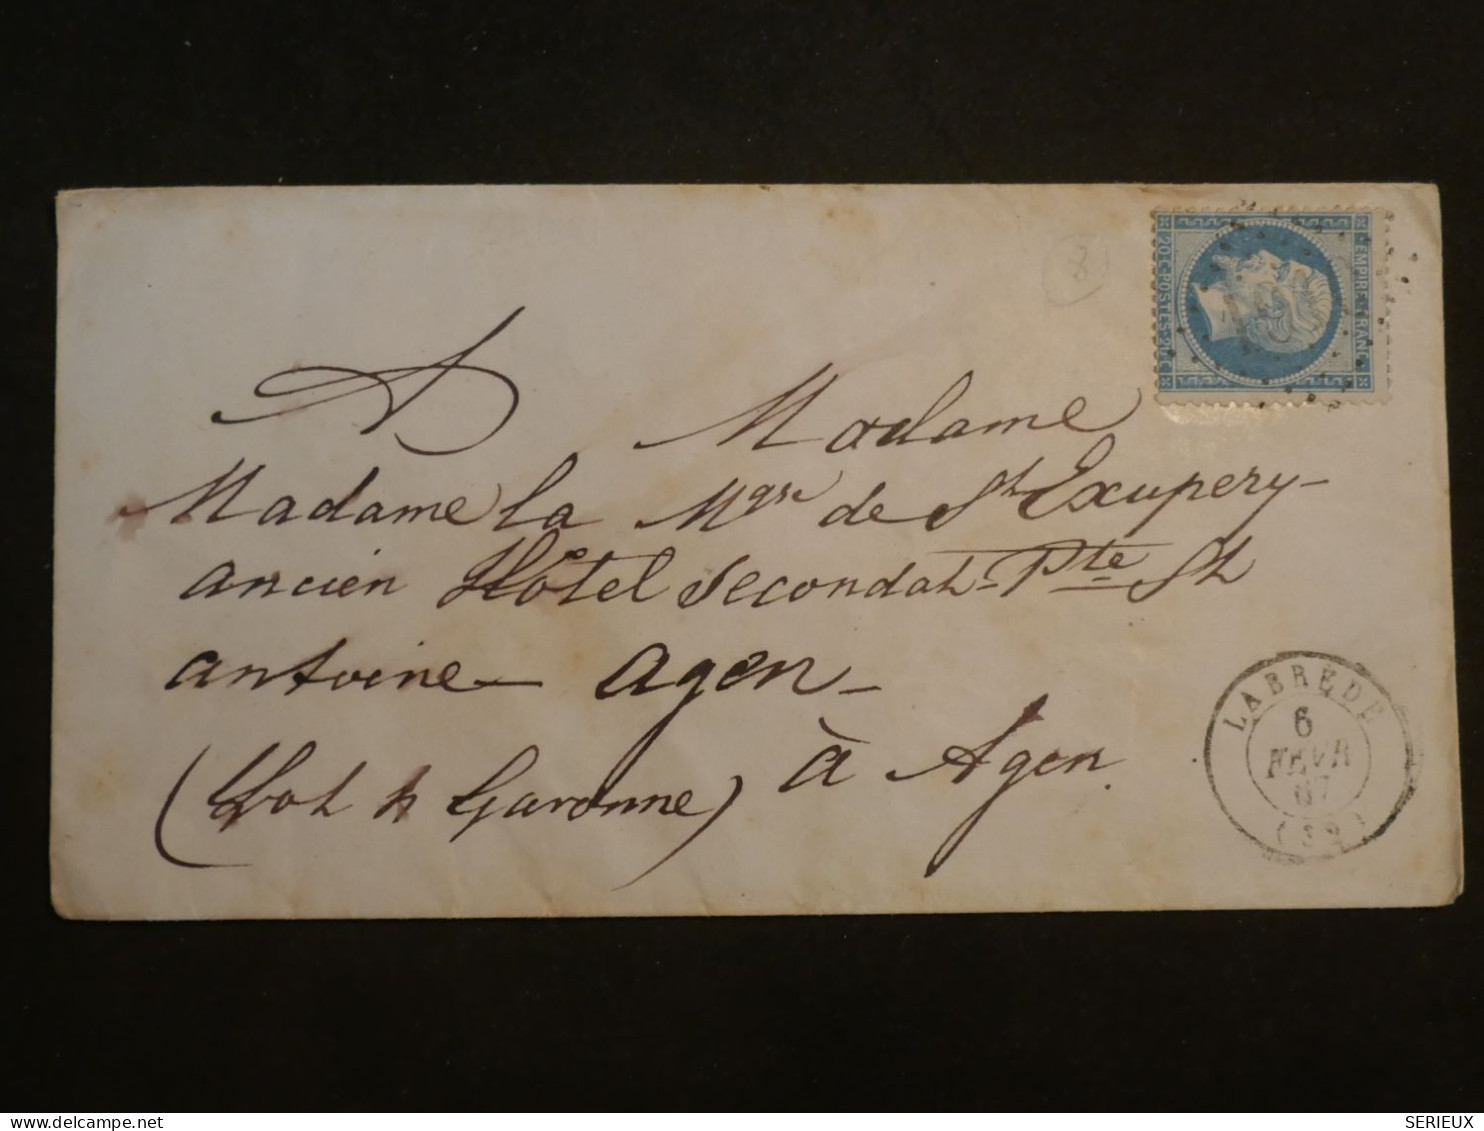 8
EMPIRE FRANC
20 C POSTES 20 C
A Madame
Madame la Mgse de St Exupery-
ancien Hôtel Secondat- Pte St
antoine- Agen-
(Lot & Garonne) à Agen.
LABREDE
6
FEVR
67
(32)
delcampe.net
SERIEUX